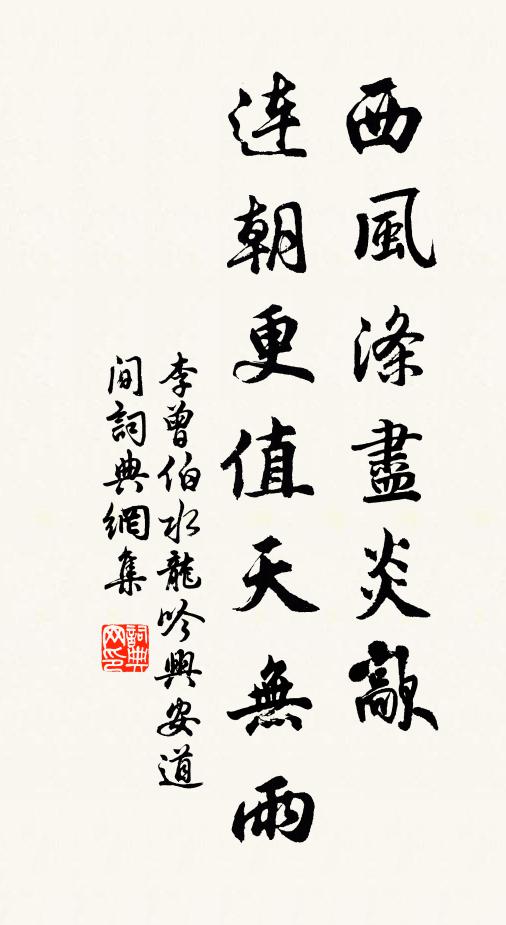 西風滌盡炎歊
連朝更值天無雨
李曾伯水龍吟興安道
間詞典網集
詞典網印